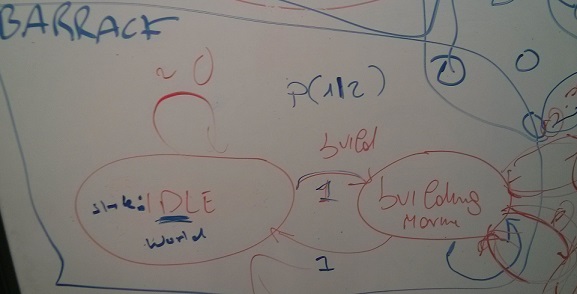 BARRACK
P(1|2)
build
1
state: IDLE
world
building
marine
1
1